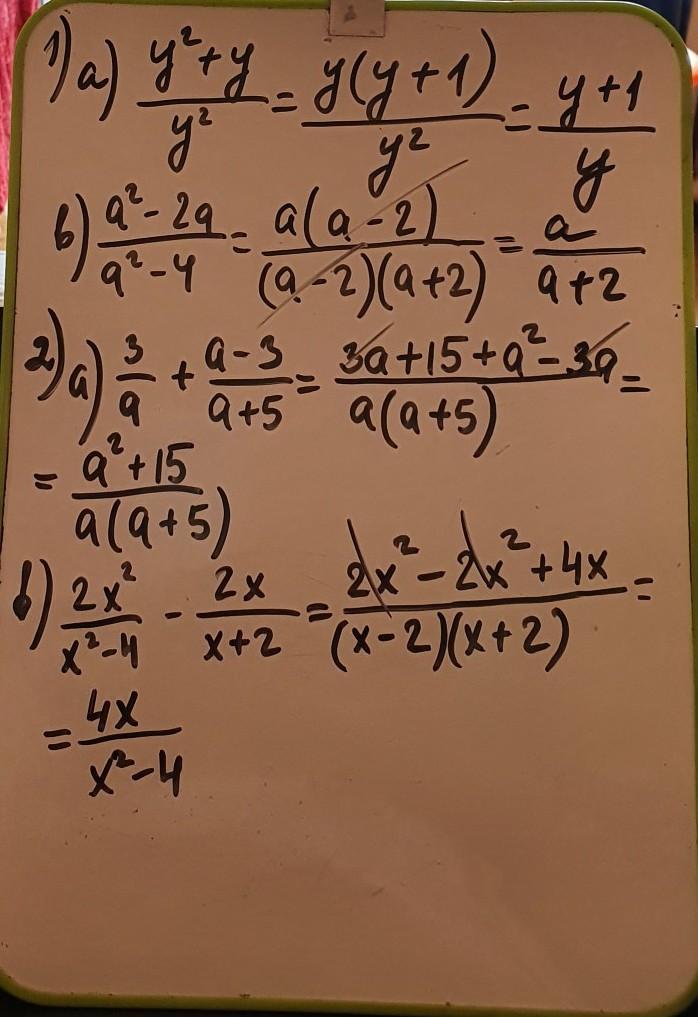 1) a) (y²+y)/y² = y(y+1)/y² = (y+1)/y
в) (a²-2a)/(a²-4) = a(a-2)/((a-2)(a+2)) = a/(a+2)
2) a) 3/a + (a-3)/(a+5) = (3a+15+a²-3a)/(a(a+5)) =
= (a²+15)/(a(a+5))
в) 2x²/(x²-4) - 2x/(x+2) = (2x²-2x²+4x)/((x-2)(x+2)) =
= 4x/(x²-4)